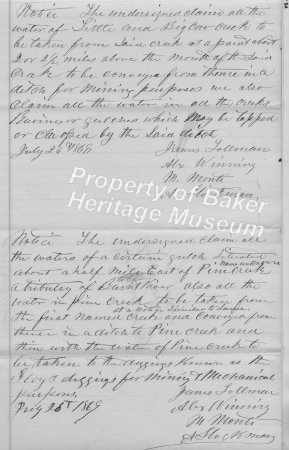 Notice The undersigned claim all the
water of Little and Big Cow Creek to
be taken from said creek at a point about
2 or 2½ miles above the mouth of the said
Creek to be conveyed from thence in a
ditch for mining purposes we also
claim all the water in all the creeks
Ravines or gulches which may be tapped
or crossed by the said ditch
July 26th 1869 James Tolleman
Alex Winning
M. Monti
Property of Baker
Heritage Museum
Notice The undersigned claim all
the waters of a certain gulch situated
about a half mile East of Pine Creek
a tributary of Burnt River also all the
water in Pine Creek to be taken from
the first named Creek and conveyed from
thence in a ditch to Pine creek and
then with the water of Pine Creek to
be taken to the diggings known as the
diggings for mining & Mechanical
purposes, James Tolleman
26th 1869 Alex Winning
M Monti
A Stockman